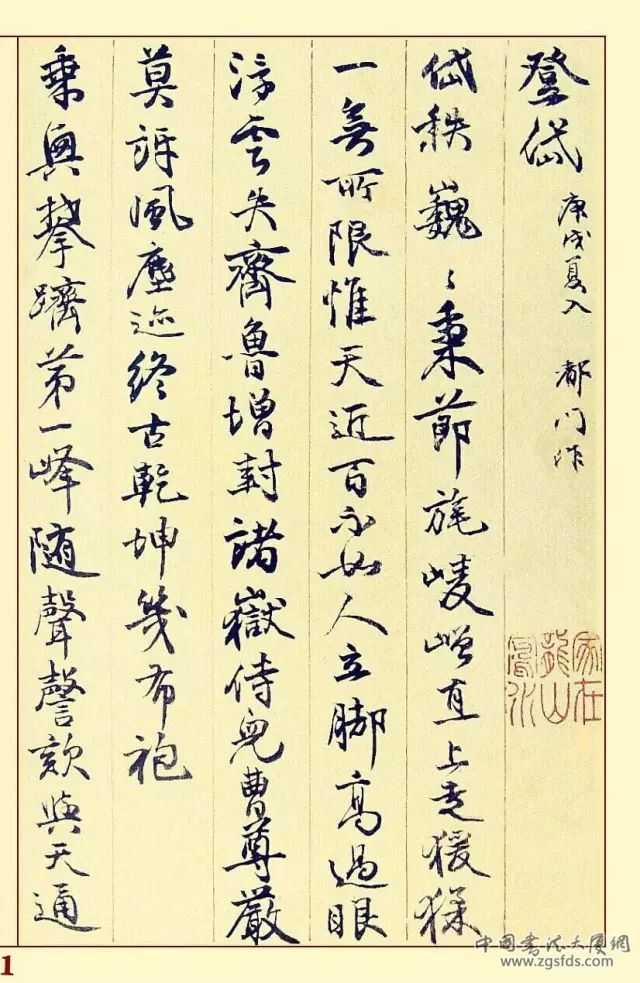 登岱 庚戌夏入 都门作
岱秩巍〻秉節旄崚嶒直上走猨猱
一無所限惟天近百不如人立脚高過眼
浮雲失齊魯增封諸嶽侍兒曹尊嚴
莫訝風塵迹終古乾坤幾布袍
乘輿攀躋第一峰随聲謦欬與天通
家在
龍山
中国书法大厦网
www.zgsfds.com
1